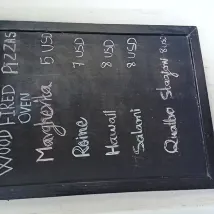 WOOD FIRED PIZZAS
OVEN
Margherita 5 USD
Reine 7 USD
Hawaii 8 USD
Salami 8 USD
Quattro Stagioni 8 USD